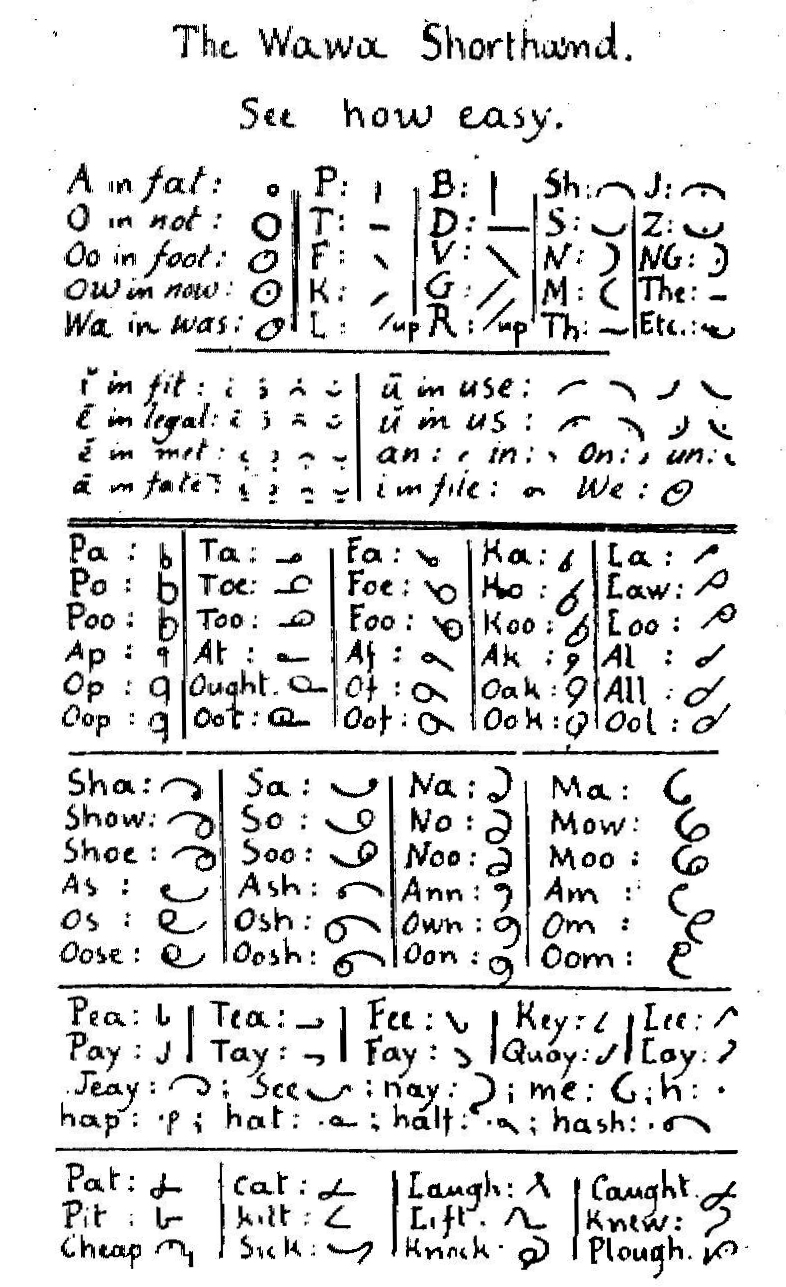 The Wawa Shorthand.
See how easy.
A in fat: P: B: Sh: J:
O in not: T: D: S: Z:
Oo in foot: F: V: N: NG:
OW in now: K: G: M: The:
Wa in was: L: up R: up Th: Etc.:
ĭ in fit: ū in use:
ē in legal: ŭ in us:
ĕ in met: an: in: On: un:
ā in fate: i in file: We:
Pa: Ta: Fa: Ka: La:
Po: Toe: Foe: Ko: Law:
Poo: Too: Foo: Koo: Loo:
Ap: At: Af: Ak: Al:
Op: Ought. Of: Oak: All:
Oop: Oot: Oof: Ook: Ool:
Sha: Sa: Na: Ma:
Show: So: No: Mow:
Shoe: Soo: Noo: Moo:
As: Ash: Ann: Am:
Os: Osh: Own: Om:
Oose: Oosh: Oon: Oom:
Pea: Tea: Fee: Key: Lee:
Pay: Tay: Fay: Quay: Lay:
Jeay: ; See ; nay: ; me: ; h:
hap: ; hat: ; half: ; hash:
Pat: cat: Laugh: Caught.
Pit: kilt: Lift. Knew:
Cheap Sick: Knock. Plough.